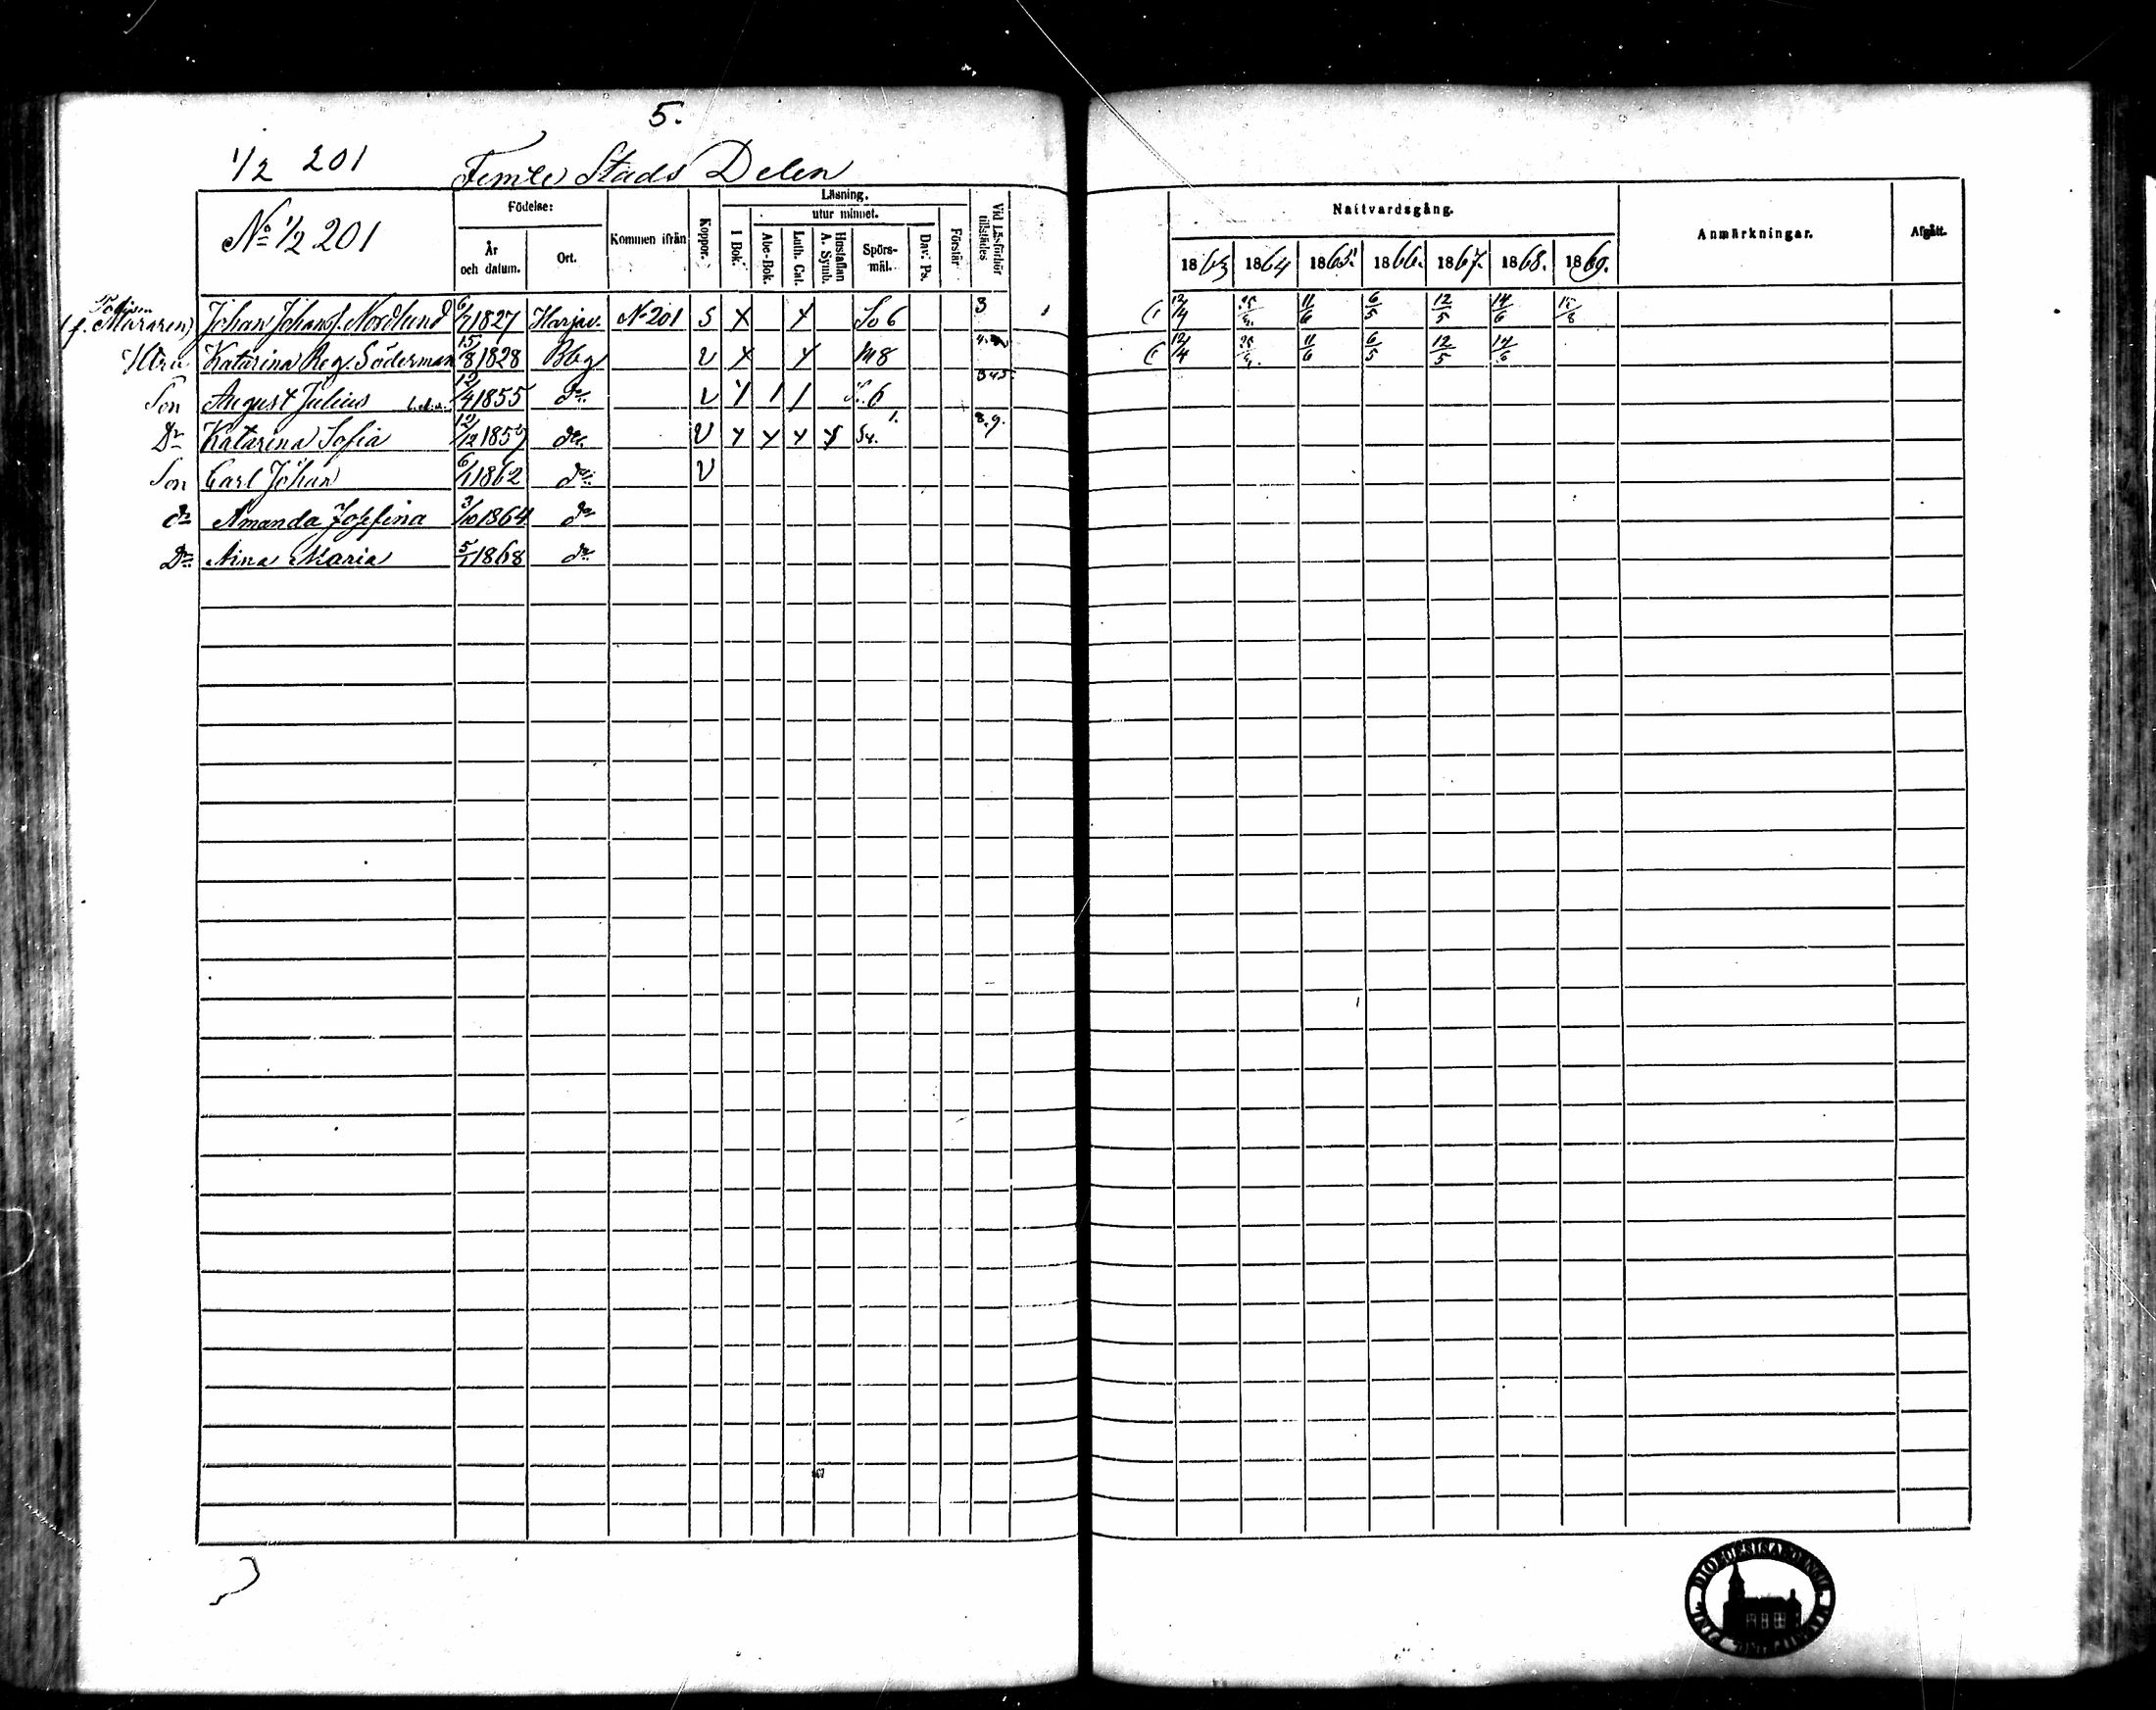 5.
1/2 201 Femte Stads Delen
No 1/2 201
Födelse:
År och datum.
Ort.
Kommen ifrån
Koppor.
Läsning.
I Bok.
utur minnet.
Abc-Bok.
Luth. Cat.
Hustaflan A. Symb.
Spörsmål.
Dav. Ps.
Förstår
Vid Läsförhör tillstädes
Nattvardsgång.
1863 1864 1865 1866. 1867. 1868. 1869.
Anmärkningar.
Afgått.
(f. Muraren) Johan Johansf. Nordlund 6/7 1827 Harjav. No 201 S x x So 6 3 12/4 11/6 6/5 12/5 14/6 15/8
Hstru Katarina Reg. Söderman 15/8 1828 Bbg v x x M 8 12/4 11/6 6/5 12/5 14/6
Son August Julius 12/4 1855 do v 6 345
Dr Katarina Sofia 12/12 1857 do v x x x x 1. 8.9.
Son Carl Johan 6/1 1862 do v
dr Amanda Josefina 3/10 1864 do
Dr Aina Maria 5/1 1868 do